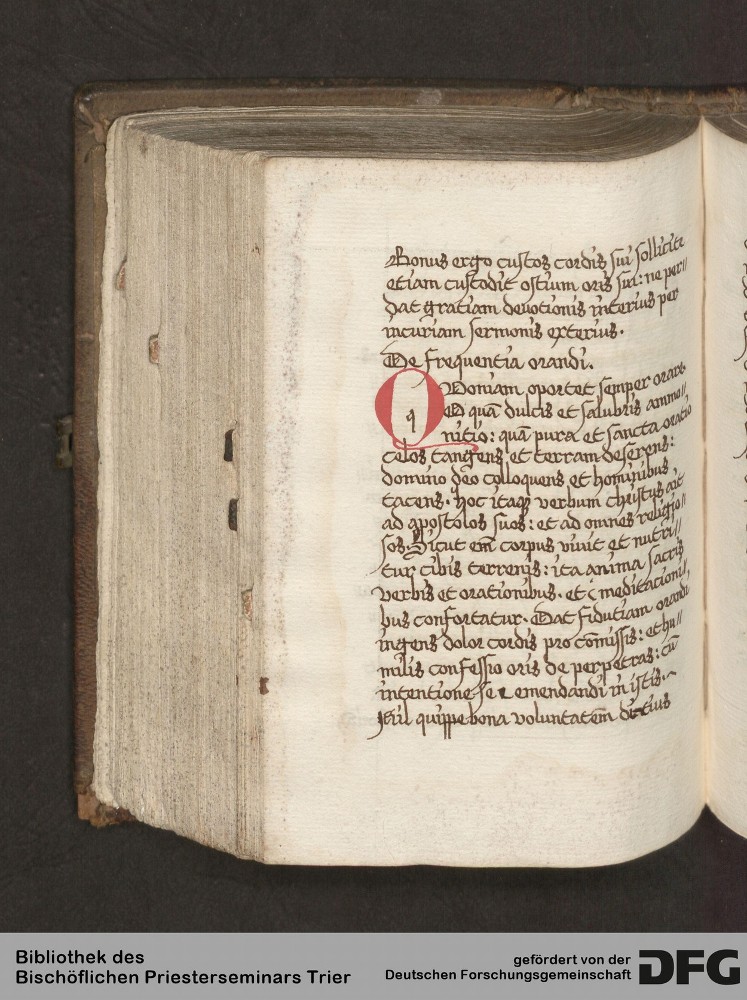 Bonus ergo custos cordis sui sollicite
etiam custodit ostium oris sui: ne per//
dat gratiam devotionis interius per
incuriam sermonis exterius.
De frequentia orandi.
QVoniam oportet semper orare.
O quā dulcis et salubris ammo//
nitio: quā pura et sancta oratio
celos tangens et terram deserens:
domino deo colloquens et hominibus
tacens. hoc itaqȝ verbum christus ait
ad apostolos suos: et ad omnes religio//
sos. Sicut em̄ corpus vivit et nutri//
tur cibis terrenis: ita anima sacris
verbis et orationibus. et meditacioni//
bus confortatur. Dat fidutiam orandi
ingens dolor cordis pro cōmissis: et hu//
milis confessio oris de perpetras: cū
intentione se emendandi in istis.
Nil quippe bona voluntatem
Bibliothek des
Bischöflichen Priesterseminars Trier
gefördert von der
Deutschen Forschungsgemeinschaft
DFG